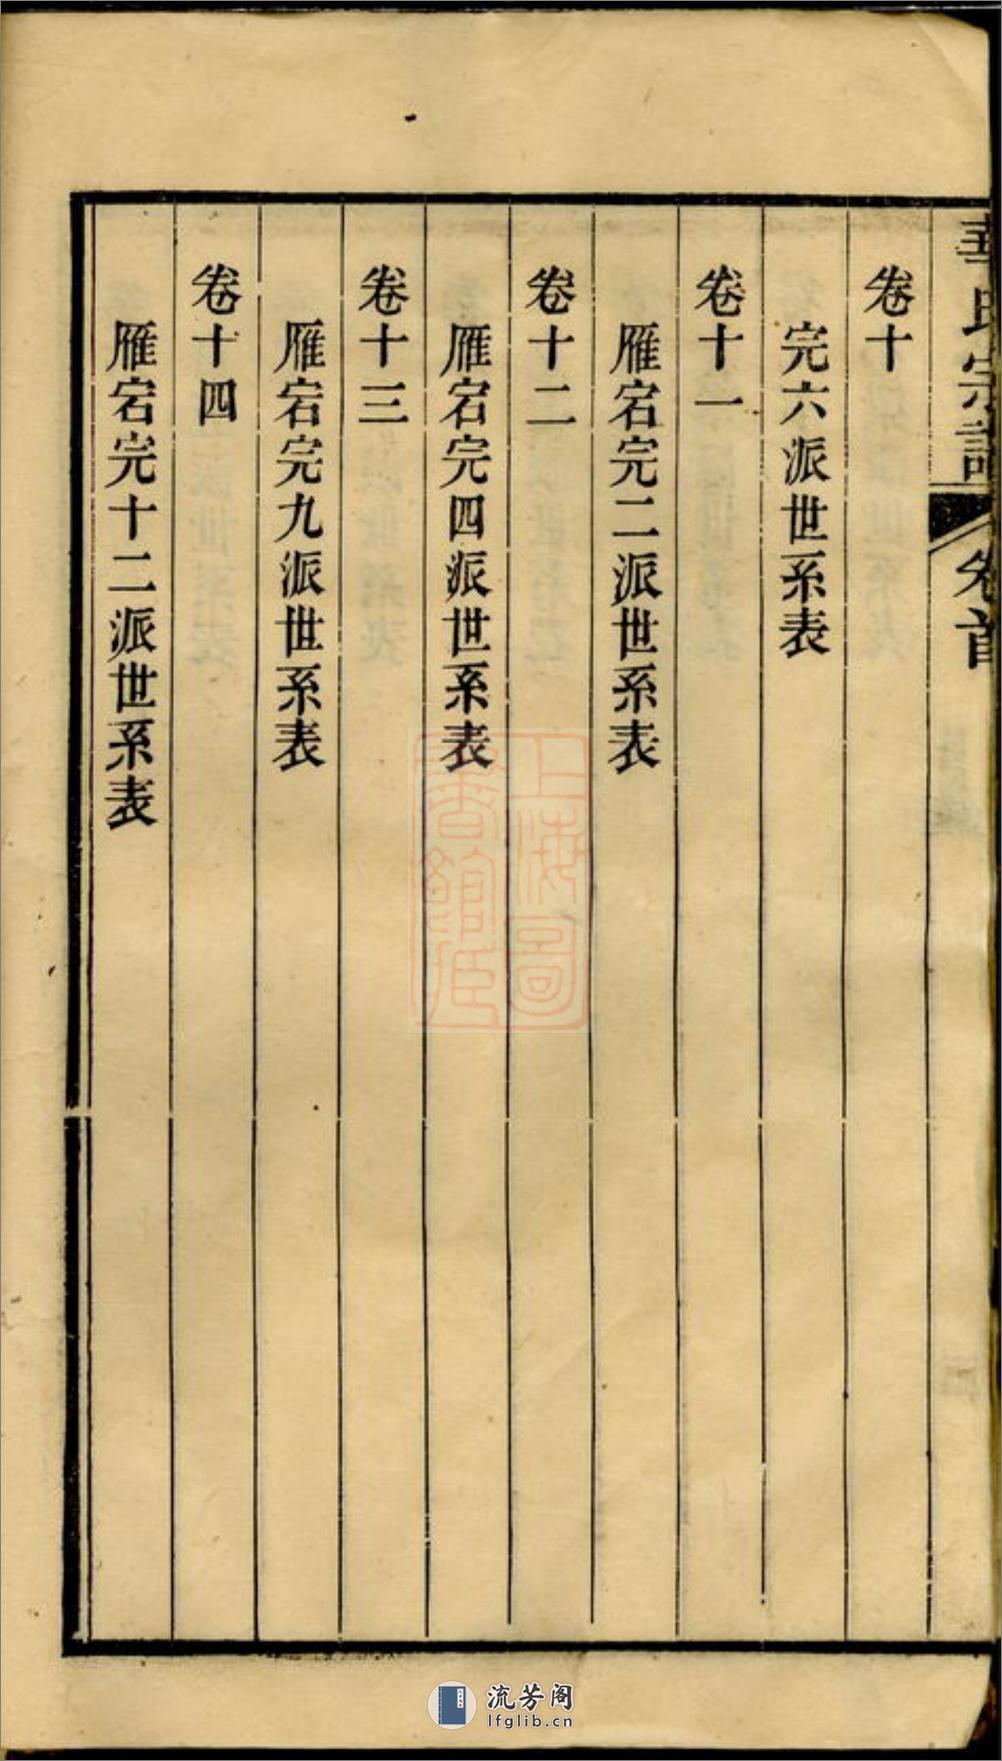 華氏宗譜 卷首
卷十
完六派世系表
卷十一
雁宕完二派世系表
卷十二
雁宕完四派世系表
卷十三
雁宕完九派世系表
卷十四
雁宕完十二派世系表
上海圖
書館藏
流芳阁
lfglib.cn